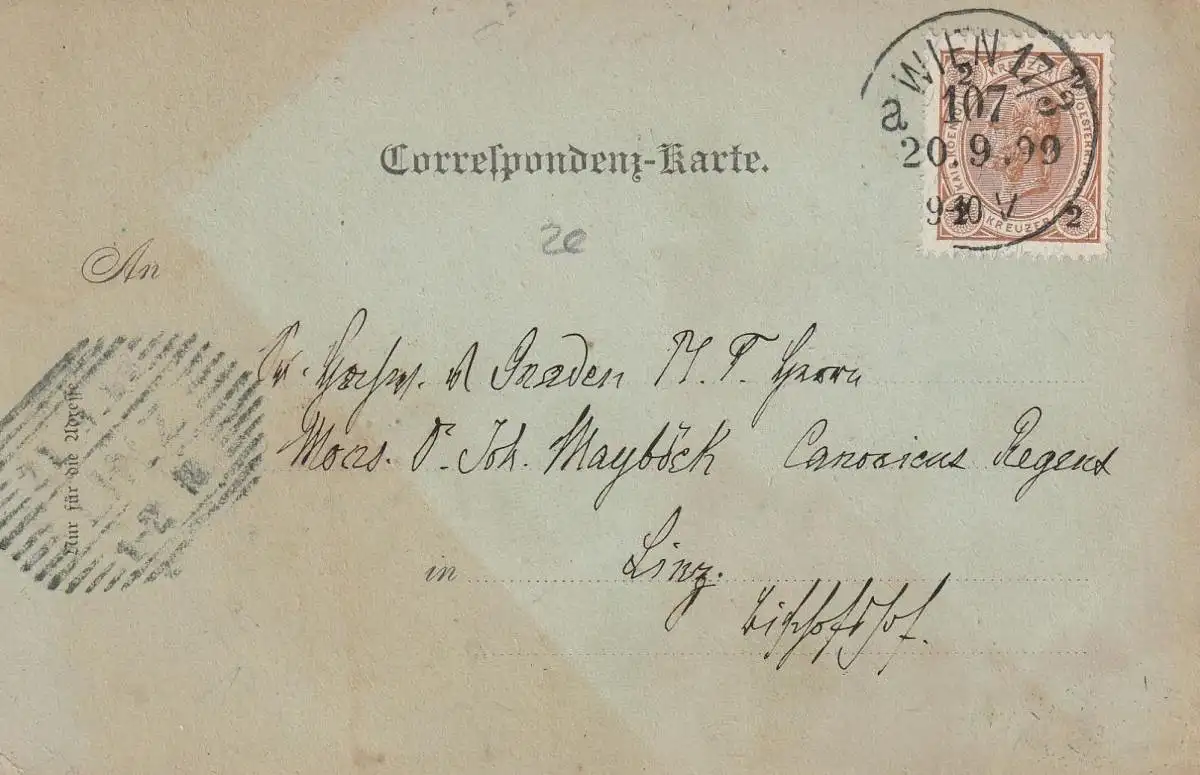 WIEN 17/3
a 107
20.9.99
9-10 V
2 KREUZER 2
Correspondenz-Karte.
2e
An
Sr. Hochw. u Gnaden P. T. Herrn
Mons. Dr. Joh. Mayböck Canonicus Regens
in Linz.
Bischofshof.
Nur für die Adresse
LINZ
1-2 N